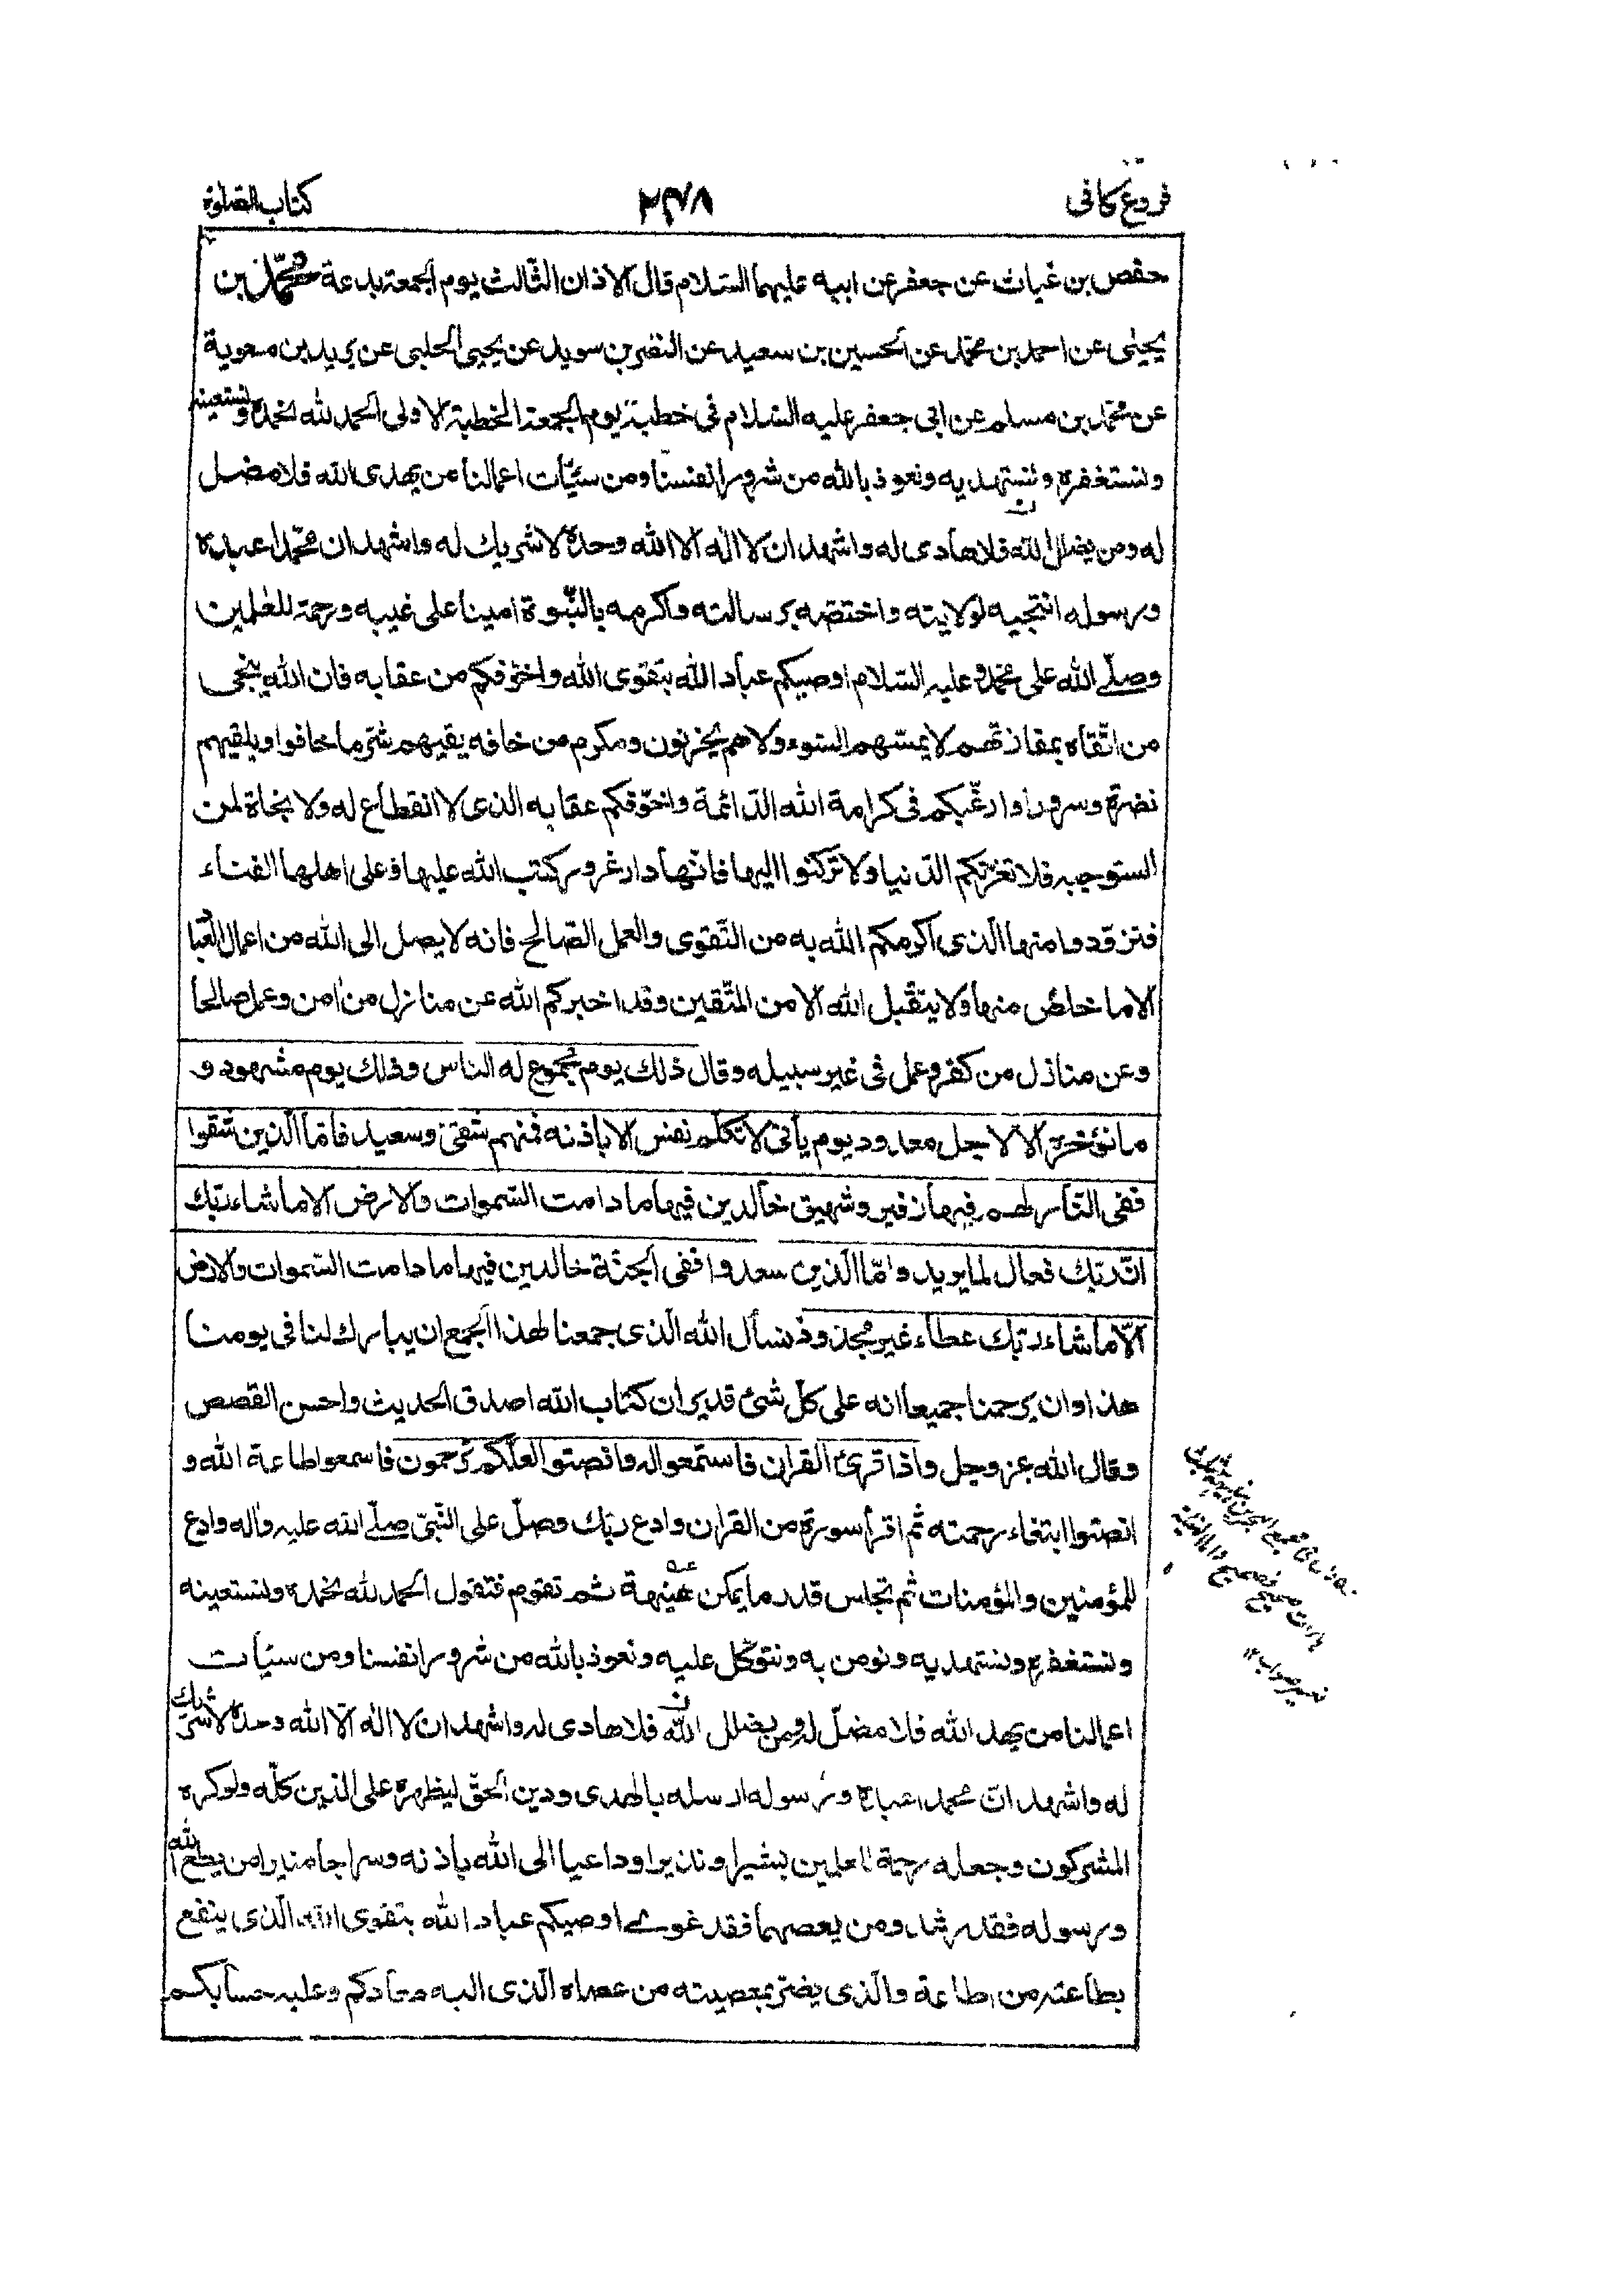 فروع كافى
٢٣٨
كتاب الصلوة
حفص بن غياث عن جعفر عن ابيه عليهما السّلام قال الاذان الثّالث يوم الجمعة بدعة محمّد بن
يحيٰى عن احمد بن محمّد عن الحسين بن سعيد عن النضر بن سويد عن يحيى الحلبى عن بريد بن معوية
عن محمّد بن مسلم عن ابى جعفر عليه السّلام فى خطبة يوم الجمعة الخطبة الاولى الحمد لله نحمده ونستعينه
ونستغفره ونستهديه ونعوذ بالله من شرور انفسنا ومن سيّأت اعمالنا من يهدى الله فلا مضل
له ومن يضلل الله فلا هادى له واشهد ان لا اله الا الله وحده لا شريك له واشهد ان محمّدا عبده
ورسوله انتجبه لولايته واختصّه برسالته واكرمه بالنّبّوة امينا على غيبه ورحمة للعٰلمين
وصلّے الله على محمّد وعليه السّلام اوصيكم عباد الله بتقوى الله واخوّفكم من عقابه فان الله ينجى
من اتّقاه بمفازتهم لا يمسّهم السّوء ولا هم يحزنون ومكرم من خافه يقيهم شرّ ما خافوا ويلقيهم
نضرة وسرورا وارغّبكم فى كرامة الله الدّائمة واخوّفكم عقابه الذى لا انقطاع له ولا نجاة لمن
استوجبه فلا تغرّنّكم الدّنيا ولا تركنوا اليها فانّها دار غرور كتب الله عليها وعلى اهلها الفناء
فتزوّدوا منها الّذى اكرمكم الله به من التّقوى والعمل الصّالح فانه لا يصل الى الله من اعمال العباد
الا ما خلص منها ولا يتقبل الله الا من المتّقين وقد اخبركم الله عن منازل من اٰمن وعمل صالحا
وعن منازل من كفر وعمل فى غير سبيله وقال ذلك يوم مجموع له الناس وذلك يوم مشهود و
ما نؤخره الا لاجل معدود يوم يأتى لا تكلم نفس الا باذنه فمنهم شقىّ وسعيد فامّا الّذين شقوا
ففى النّار لهم فيها زفير وشهيق خالدين فيها ما دامت السّموات والارض الا ما شاء ربّك
انّ ربّك فعال لما يريد وامّا الّذين سعدوا ففى الجنّة خالدين فيها ما دامت السّموات والارض
الّا ما شاء ربّك عطاء غير مجذوذ نسأل الله الّذى جمعنا لهذا الجمع ان يبارك لنا فى يومنا
هذا وان يرحمنا جميعا انه على كلّ شئ قدير ان كتاب الله اصدق الحديث واحسن القصص
وقال الله عز وجل واذا قرئ القران فاستمعوا له وانصتوا لعلّكم ترحمون فاسمعوا طاعة الله و
انصتوا ابتغاء رحمته ثم اقرأ سورة من القران وادع ربّك وصلّ على النّبىّ صلّے الله عليه واٰله وادع
للمؤمنين والمؤمنات ثم تجلس قدر ما يمكن هنيهة ثم تقوم فتقول الحمد لله نحمده ونستعينه
ونستغفره ونستهديه ونومن به ونتوكّل عليه ونعوذ بالله من شرور انفسنا ومن سيّأت
اعمالنا من يهد الله فلا مضلّ له ومن يضلل الله فلا هادى له واشهد ان لا اله الّا الله وحده لا شريك
له واشهد انّ محمدا عبده ورسوله ارسله بالهدى ودين الحقّ ليظهره على الدّين كلّه ولو كره
المشركون وجعله رحمة للعلمين بشيرا ونذيرا وداعيا الى الله باذنه وسراجا منيرا من يطع الله
ورسوله فقد رشد ومن يعصهما فقد غوے اوصيكم عباد الله بتقوى الله الّذى ينفع
بطاعته من اطاعة والّذى يضرّ بمعصيته من عصاه الّذى اليه معادكم وعليه حسابكم